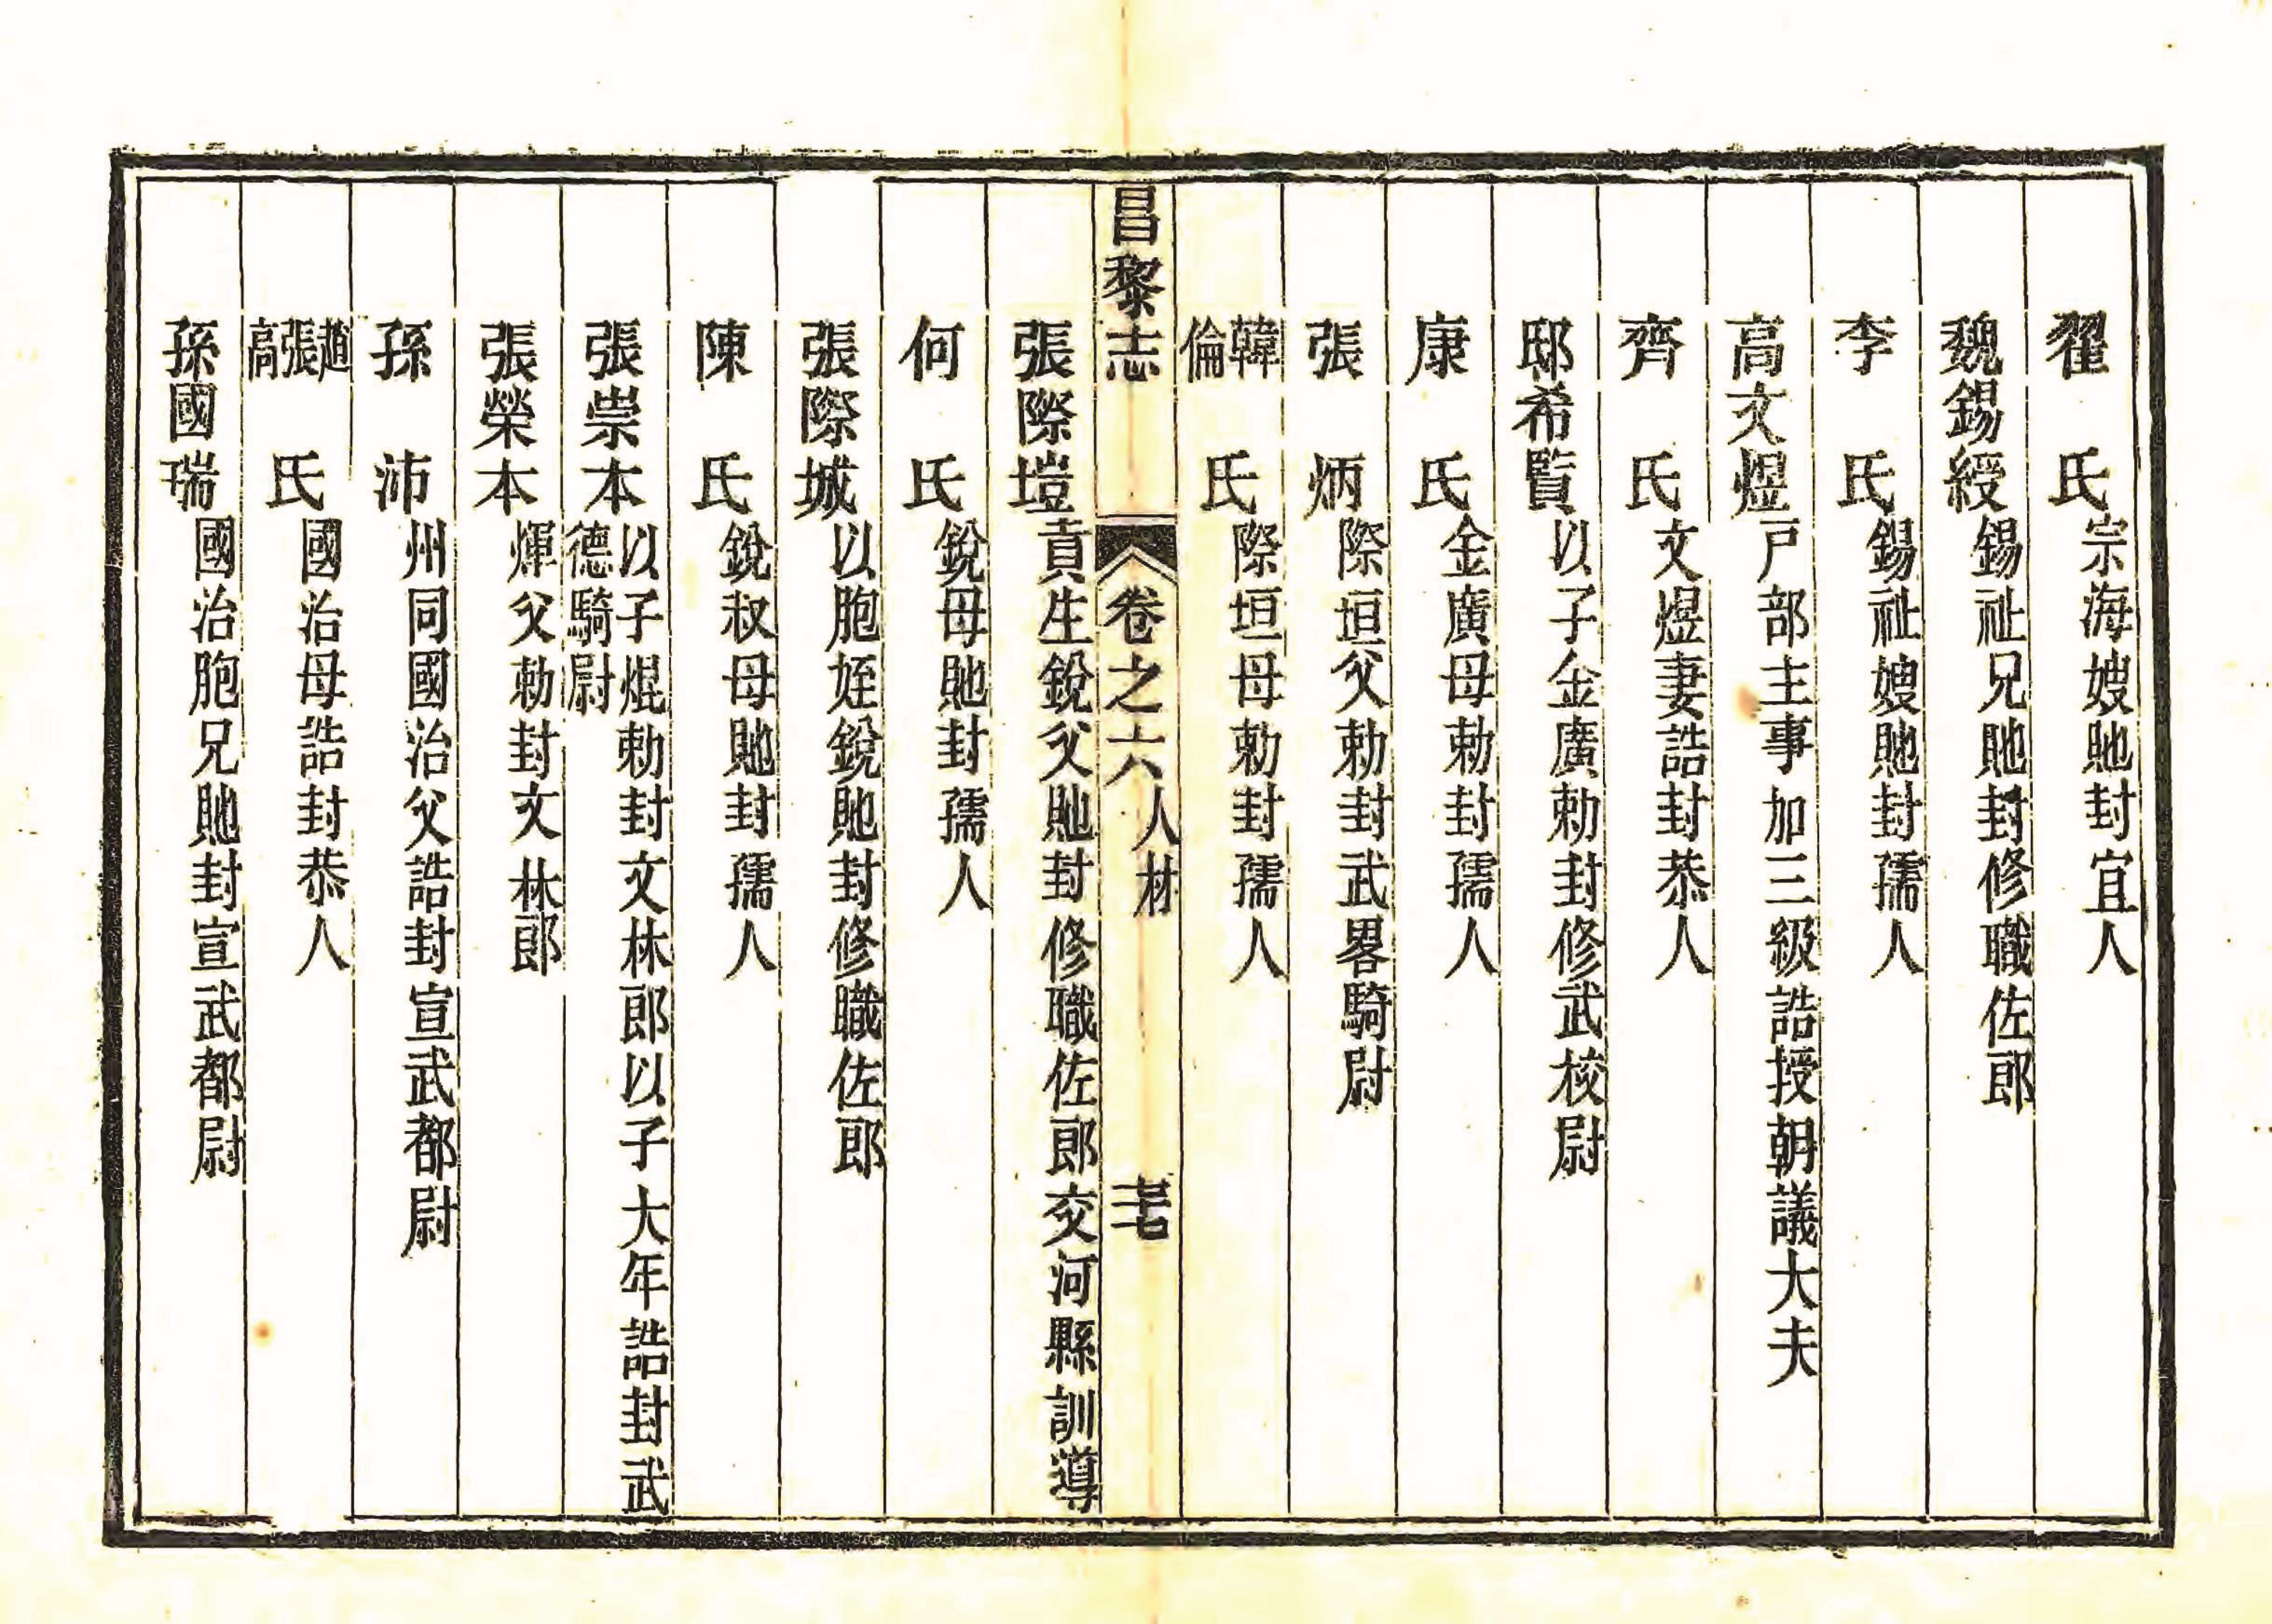 翟　氏宗海嫂貤封宜人
魏錫綬錫祉兄貤封修職佐郎
李　氏錫祉嫂貤封孺人
高文煜戸部主事加三級誥授朝議大夫
齊　氏文煜妻誥封恭人
邸希覧以子金廣勅封修武校尉
康　氏金廣母勅封孺人
張　炳際垣父勅封武畧騎尉
韓倫氏際垣母勅封孺人
昌黎志　卷之六人材
張際塏貢生銳父貤封修職佐郎交河縣訓導
何　氏銳母貤封孺人
張際城以胞姪銳貤封修職佐郎
陳　氏銳叔母貤封孺人
張崇本以子焜勅封文林郎以子大年誥封武
德騎尉
張榮本煇父勅封文林郎
孫　沛州同國治父誥封宣武都尉
趙張高氏國治母誥封恭人
孫國瑞國治胞兄貤封宣武都尉